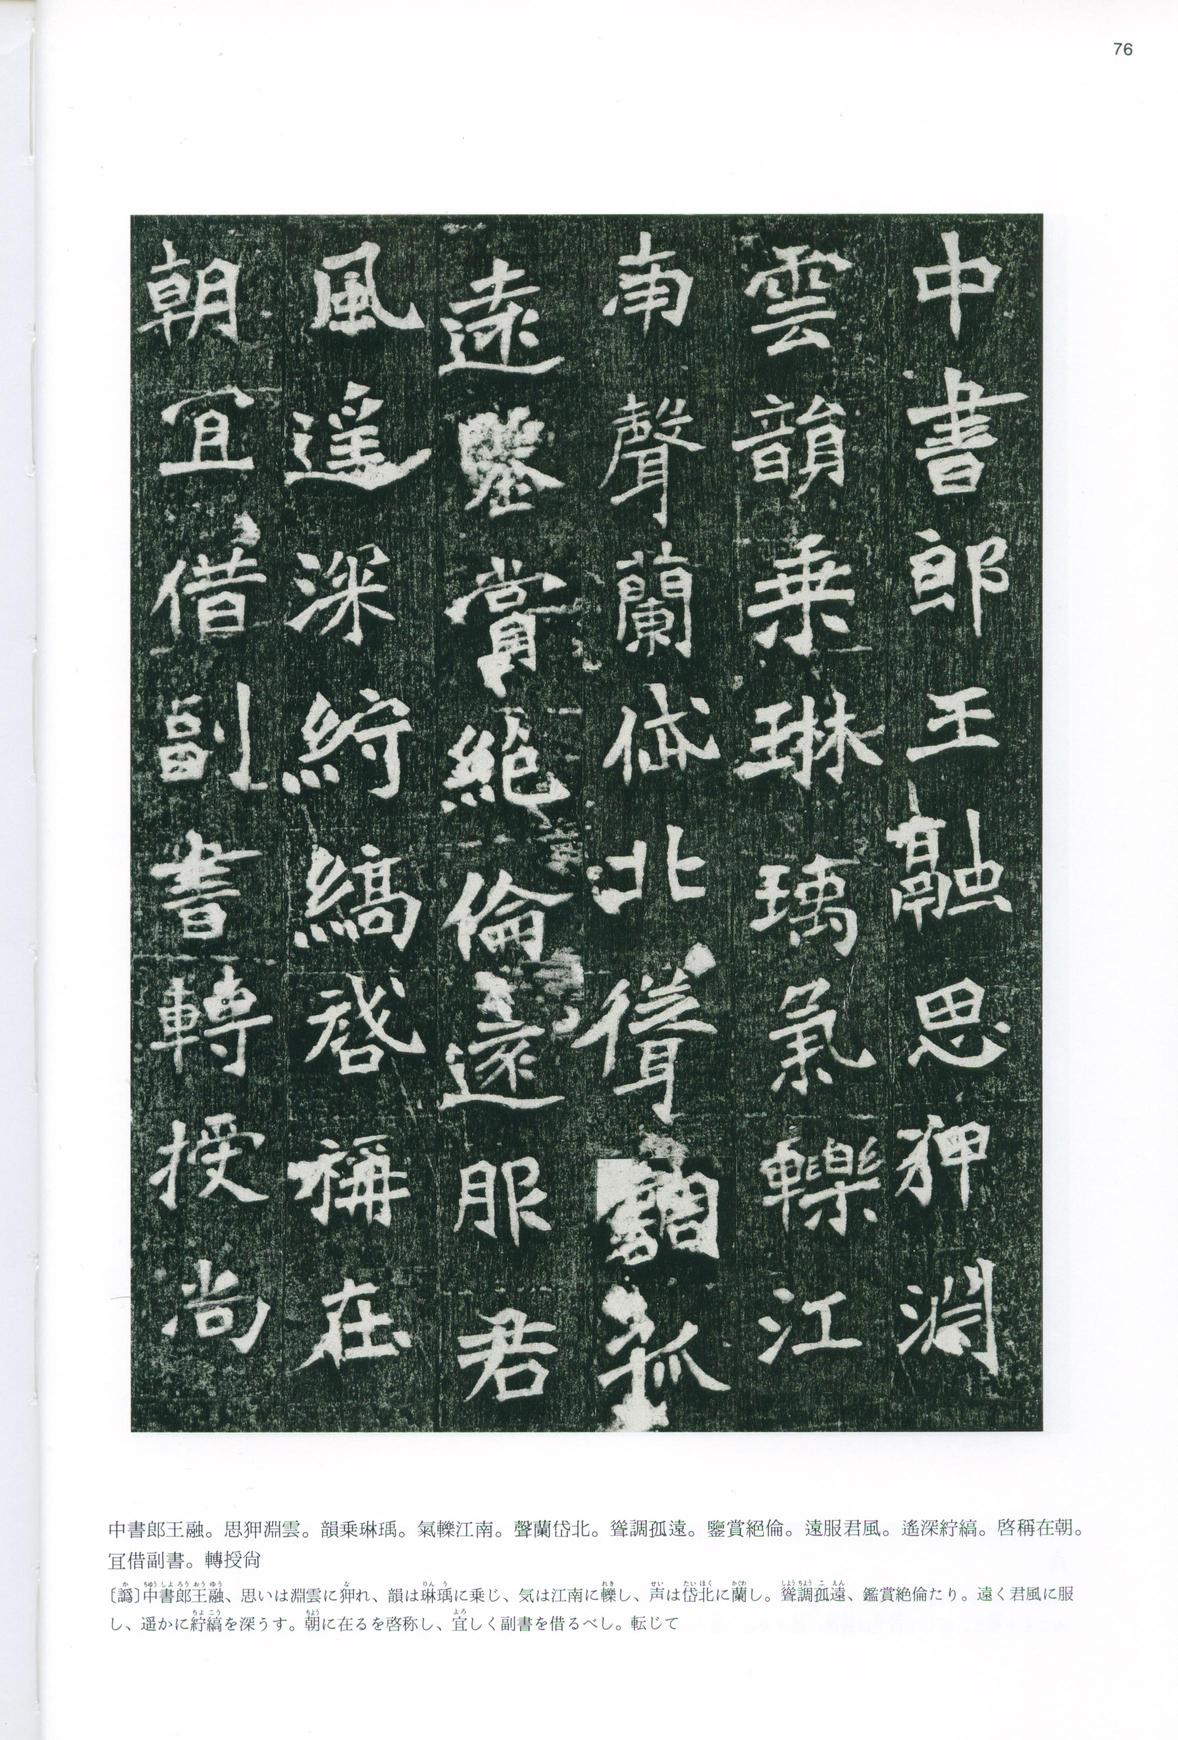 76
中書郎王融思狎淵
雲韻乗琳瑀氣轢江
南聲蘭岱北聳調孤
遠鑒賞絕倫遠服君
風遥深紵縞啓稱在
朝宜借副書轉授尚
中書郎王融。思狎淵雲。韻乗琳瑀。氣轢江南。聲蘭岱北。聳調孤遠。鑒賞絕倫。遠服君風。遙深紵縞。啓稱在朝。
宜借副書。轉授尙
中書郎王融、思いは淵雲に狎れ、韻は琳瑀に乗じ、気は江南に轢し、声は岱北に蘭し。聳調孤遠、鑑賞絕倫たり。遠く君風に服
し、遥かに紵縞を深うす。朝に在るを啓称し、宜しく副書を借るべし。転じて